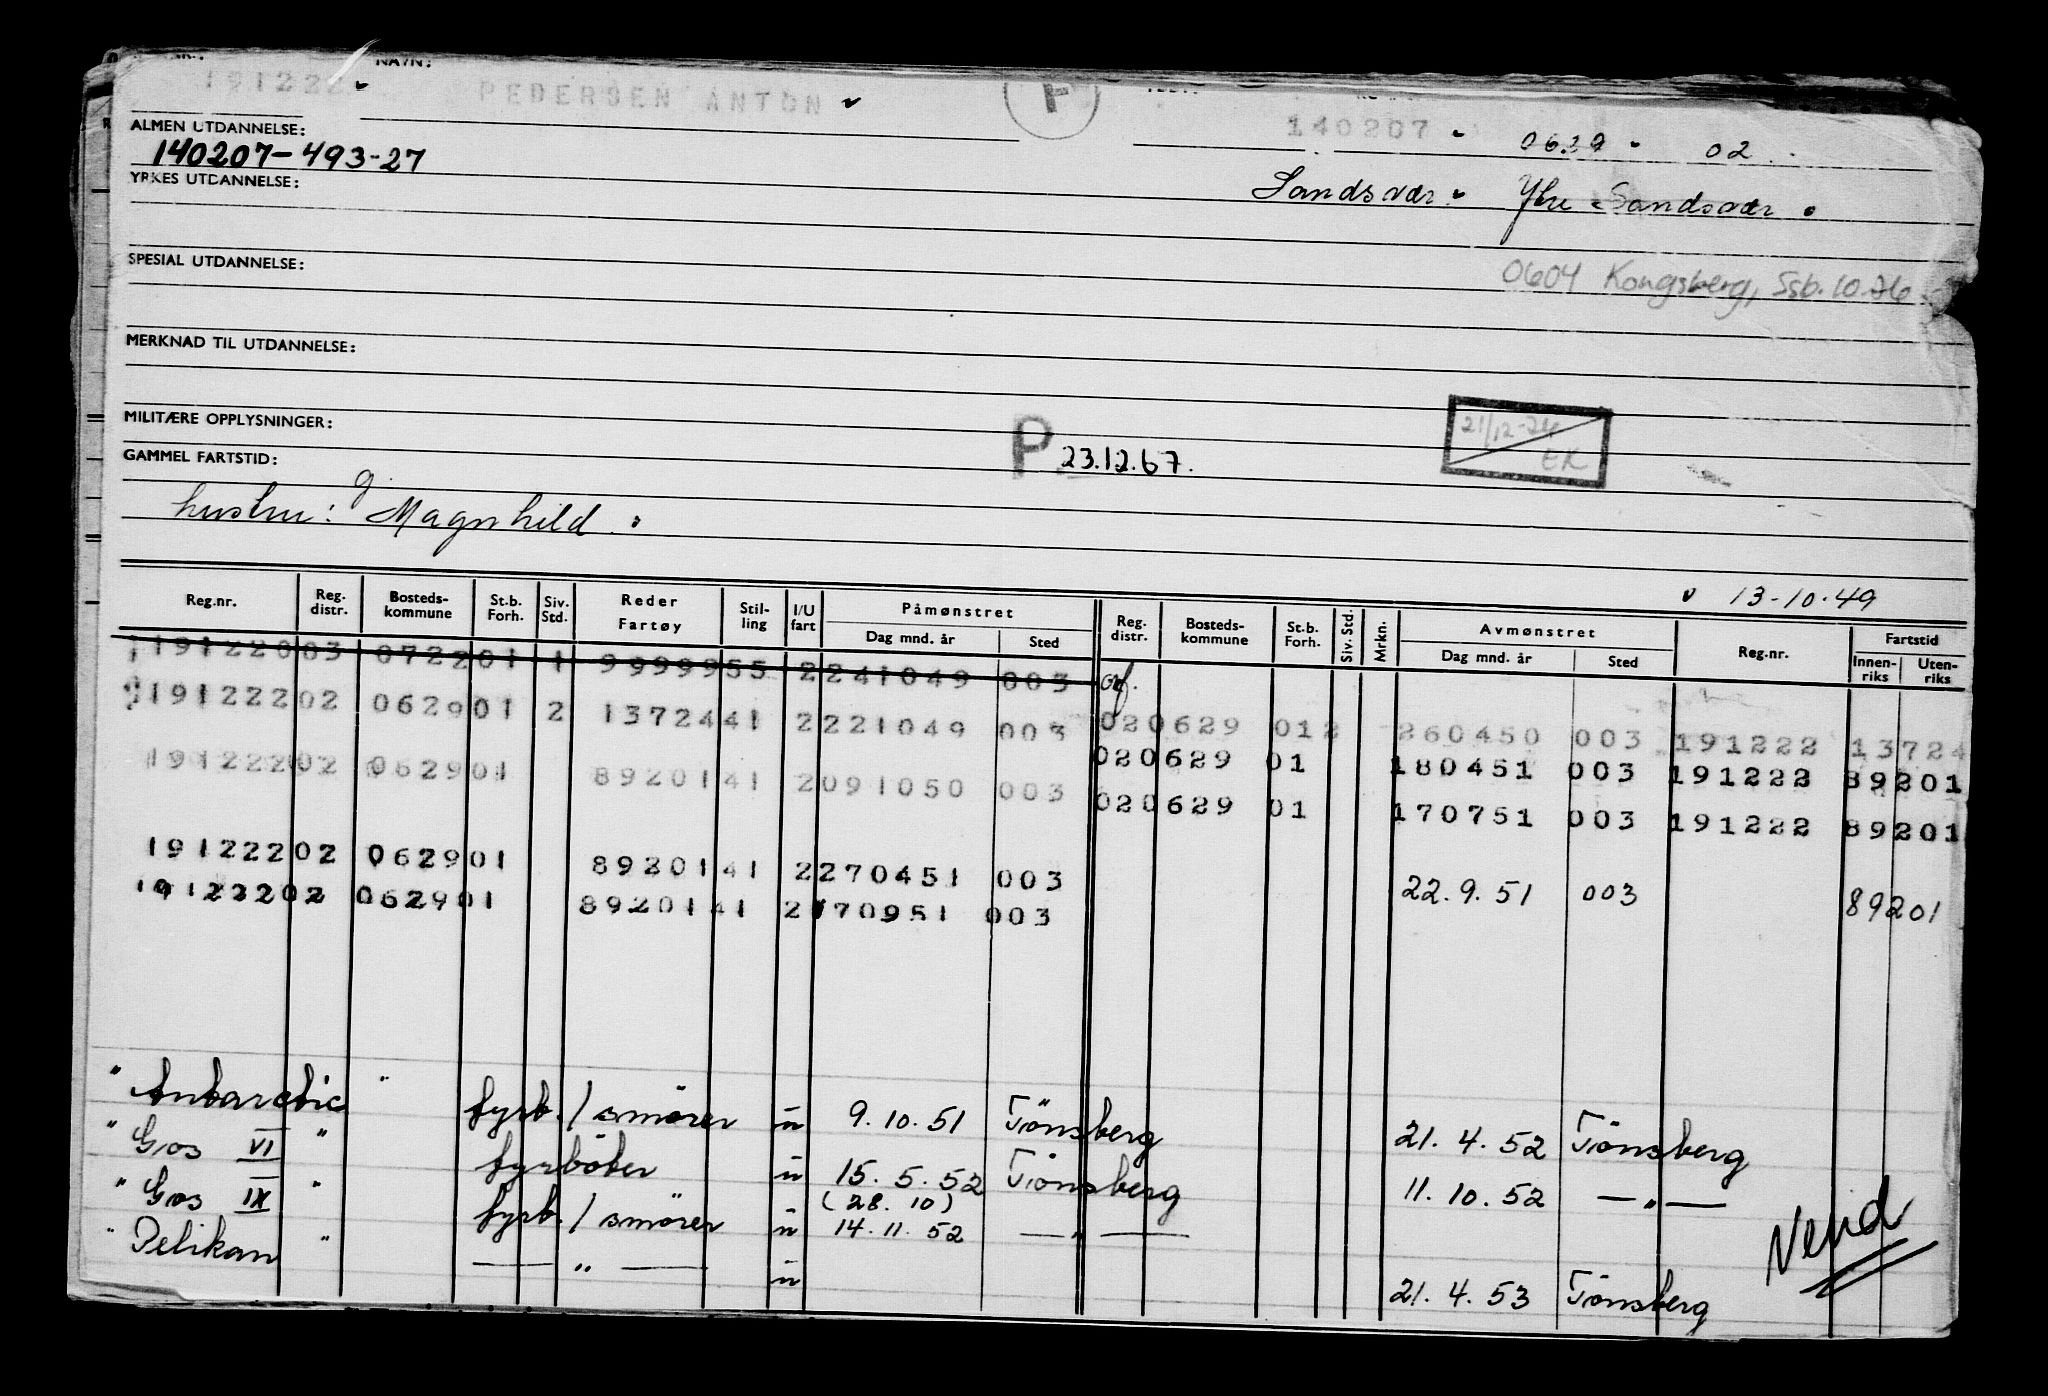 NAVN:
191222 PEDERSEN ANTON F 140207 0629 02
ALMEN UTDANNELSE:
140207-493-27
YRKES UTDANNELSE: Sandsvær Ytre Sandsvær
SPESIAL UTDANNELSE:
0604 Kongsberg, Ssb. 10.76
MERKNAD TIL UTDANNELSE:
MILITÆRE OPPLYSNINGER:
21/12-74 EK
GAMMEL FARTSTID: P 23.12.67.
hustru: Magnhild
13-10-49
Reg.nr. Reg. distr. Bosteds-kommune St.b. Forh. Siv. Std. Reder Fartøy Stil-ling I/U fart Påmønstret Dag mnd. år Sted Reg. distr. Bosteds-kommune St.b. Forh. Siv. Std. Mrkn. Avmønstret Dag mnd. år Sted Reg.nr. Fartstid Innen-riks Uten-riks
19122003 072201 1 9999955 2241049 003
19122202 062901 2 1372441 2221049 003 020629 012 260450 003 191222 13724
19122202 062901 8920141 2091050 003 020629 01 180451 003 191222 89201
020629 01 170751 003 191222 89201
19122202 062901 8920141 2270451 003
19122202 062901 8920141 2170951 003 22.9.51 003 89201
" Antarctic " fyrb./smører u 9.10.51 Tönsberg 21.4.52 Tönsberg
" Gos VI " fyrböter u 15.5.52 Tönsberg 11.10.52 — " —
" Gos IX " fyrb./smører u (28.10) 14.11.52 — " —
" Pelikan " — " — u 21.4.53 Tönsberg
Vend